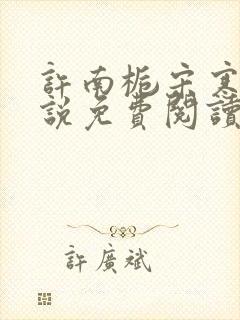 許南梔宋寒
說免費閱讀
許廣斌